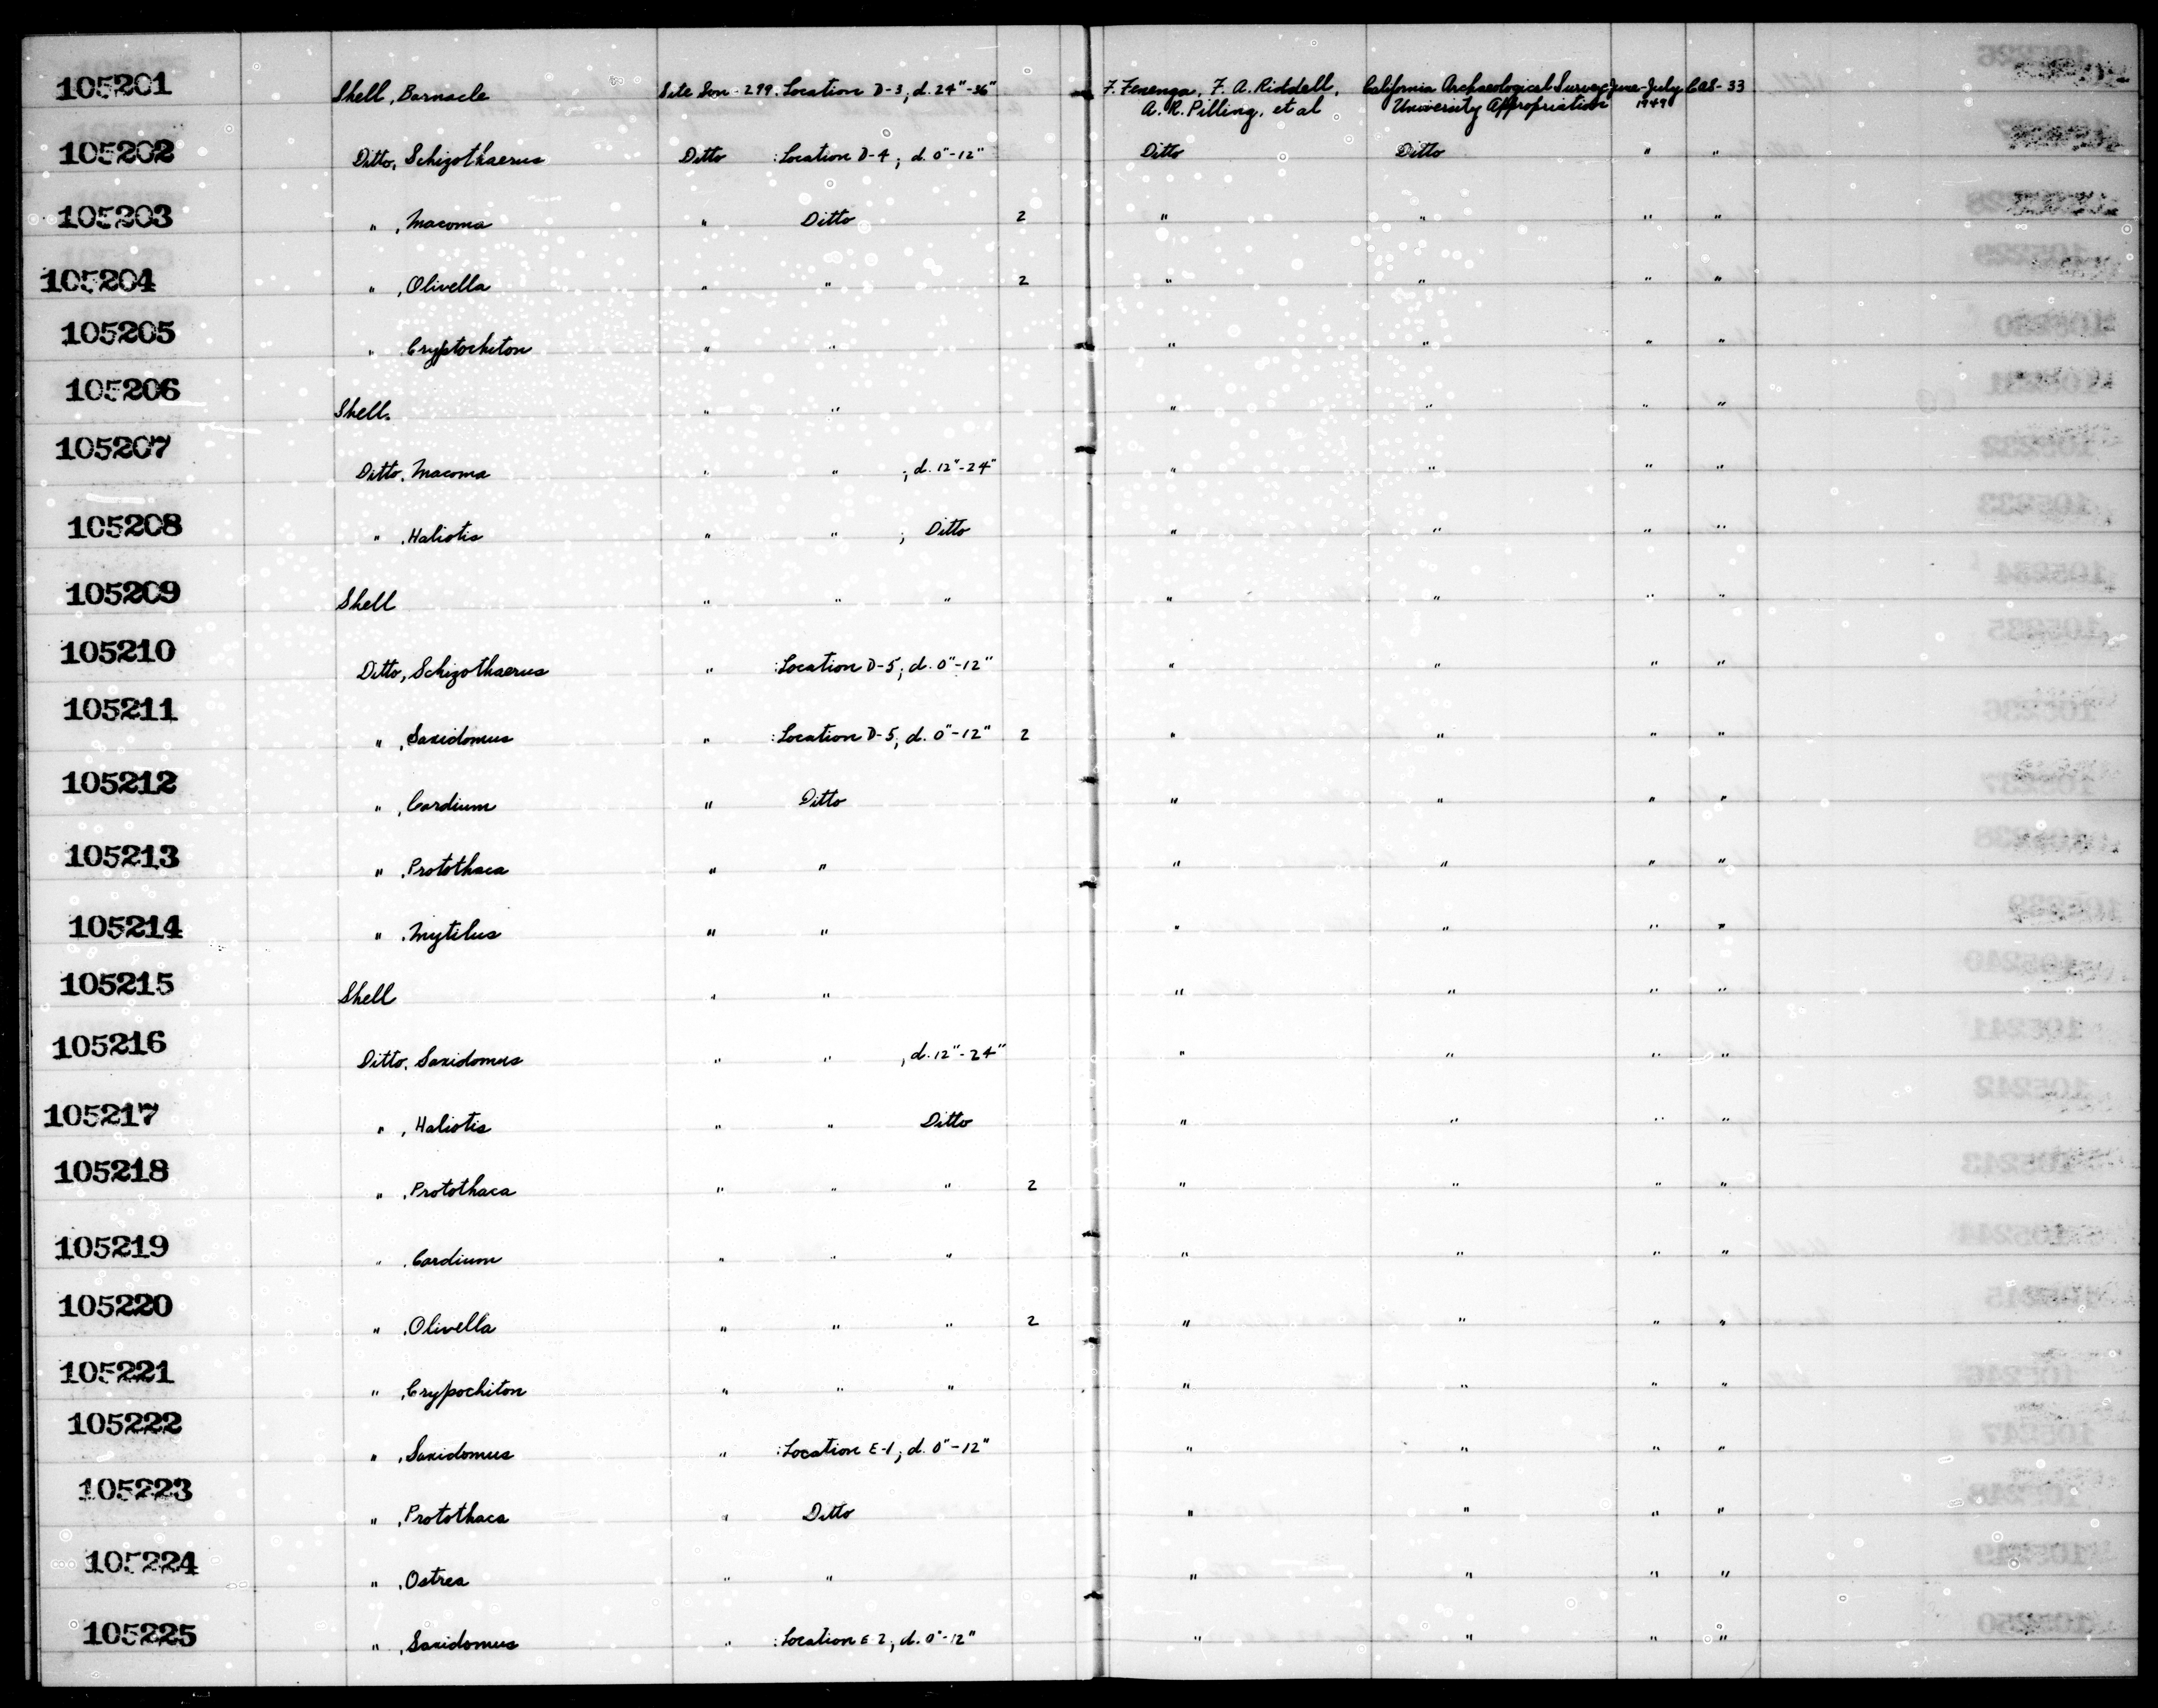 105201 Shell, Barnacle Site Son-299: Location D-3; d. 24"-36" F. Fenenga, F. A. Riddell, California Archaeological Survey June-July CAS-33
A. R. Pilling, et al University Appropriation 1949
105202 Ditto, Schizothaerus Ditto :Location D-4; d. 0"-12" Ditto Ditto " "
105203 " , Macoma " Ditto 2 " " " "
105204 " , Olivella " " 2 " " " "
105205 " , Cryptochiton " " " " " "
105206 Shell. " " " " " "
105207 Ditto, Macoma " " ; d. 12"-24" " " " "
105208 " , Haliotis " " ; Ditto " " " "
105209 Shell " " " " " " "
105210 Ditto, Schizothaerus " :Location D-5; d. 0"-12" " " " "
105211 " , Saxidomus " :Location D-5; d. 0"-12" 2 " " " "
105212 " , Cardium " Ditto " " " "
105213 " , Protothaca " " " " " "
105214 " , Mytilus " " " " " "
105215 Shell " " " " " "
105216 Ditto, Saxidomus " " ; d. 12"-24" " " " "
105217 " , Haliotis " " Ditto " " " "
105218 " , Protothaca " " " 2 " " " "
105219 " , Cardium " " " " " " "
105220 " , Olivella " " " 2 " " " "
105221 " , Crypochiton " " " " " " "
105222 " , Saxidomus " :Location E-1; d. 0"-12" " " " "
105223 " , Protothaca " Ditto " " " "
105224 " , Ostrea " " " " " "
105225 " , Saxidomus " :Location E-2; d. 0"-12" " " " "